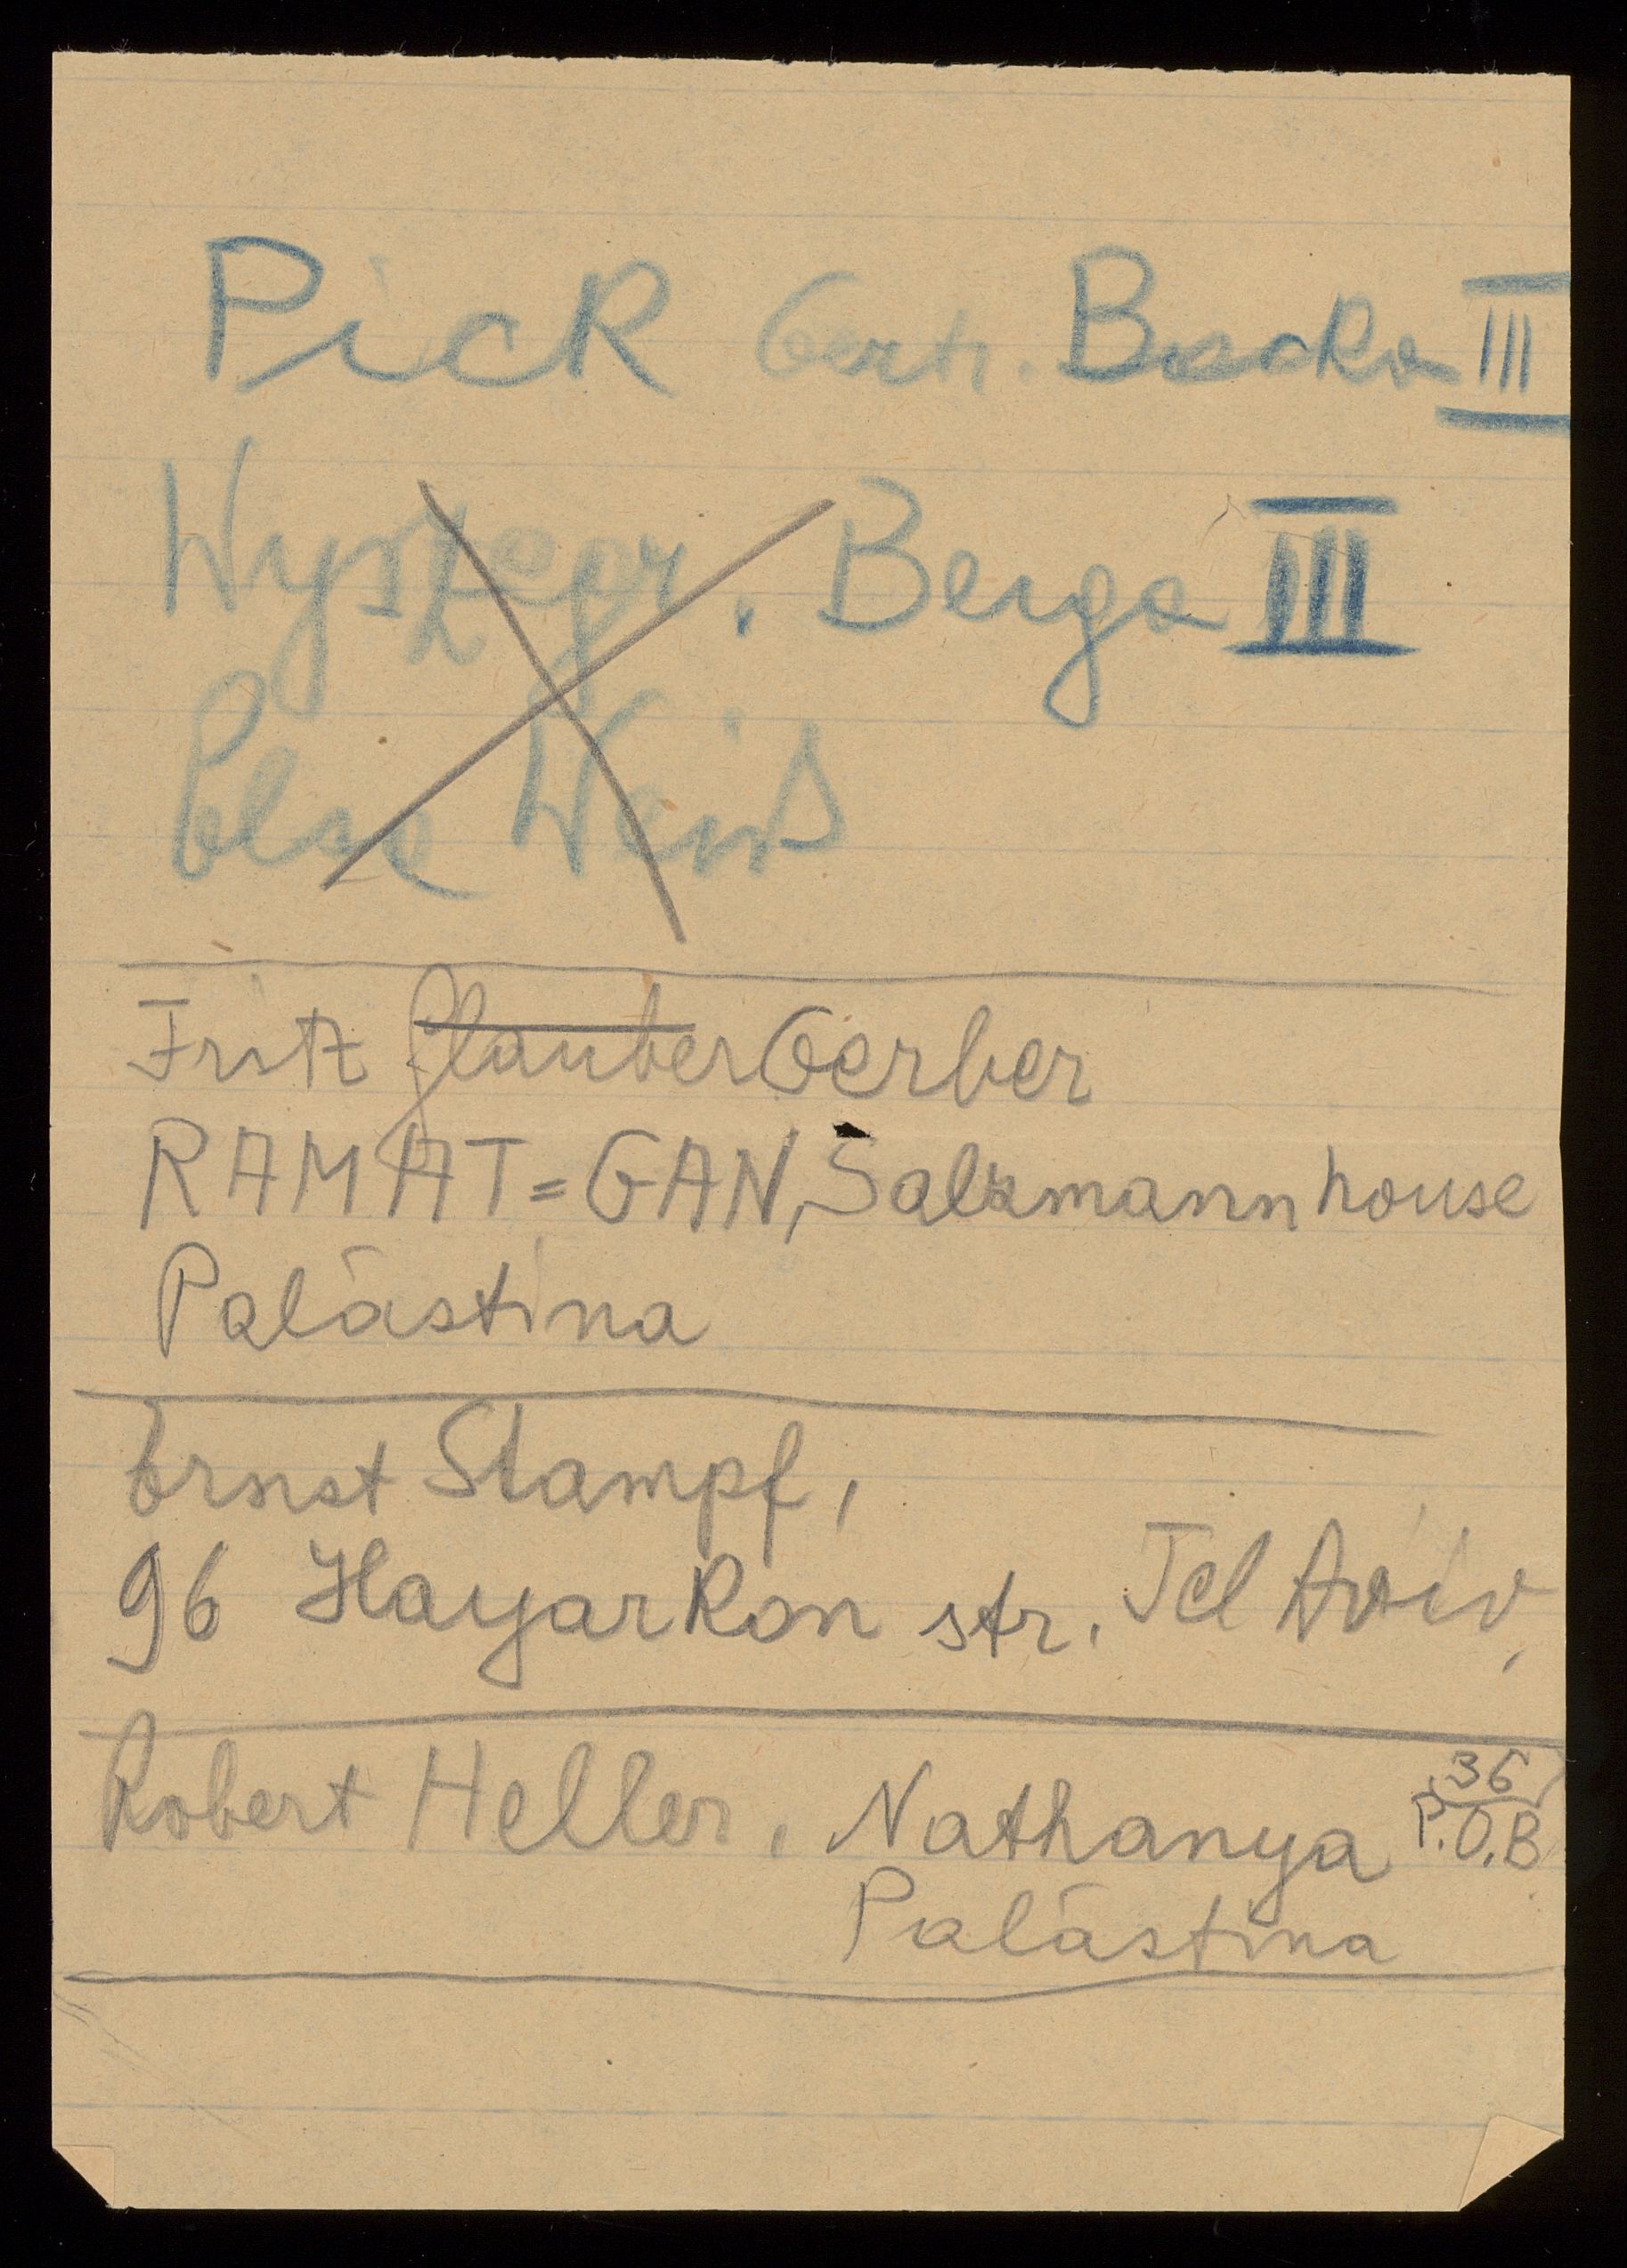 Pick Gertr. Backa III
Wyszegr. Berga III
Else Weiß
Fritz Glauber Gerber
RAMAT=GAN, Salzmannhouse
Palästina
Ernst Stampf,
96 Hayarkon str. Tel Aviv,
Robert Heller, Nathanya 36 P.O.B
Palästina